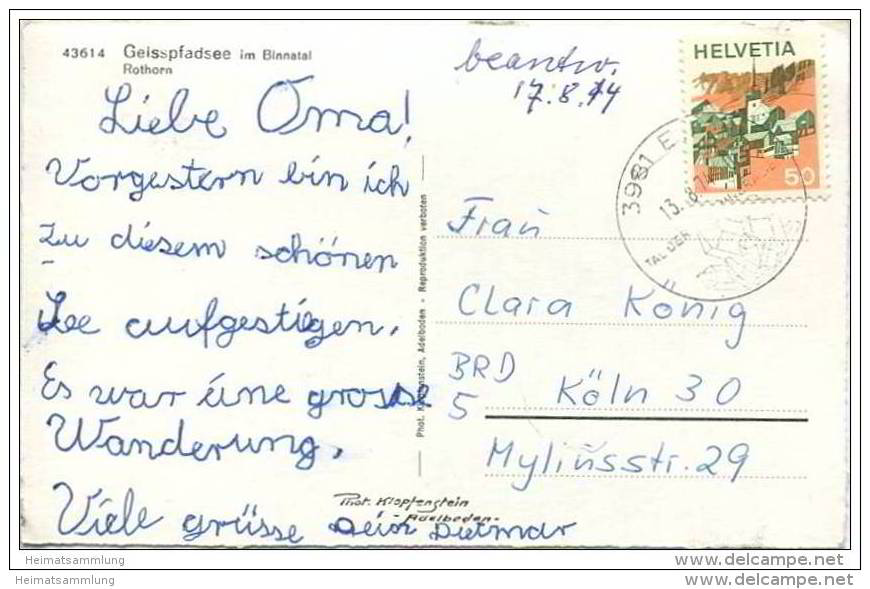 43614 Geisspfadsee im Binnatal
Rothorn
beantw.
17.8.74
HELVETIA
50
3981 E
13. 8.
TAL DER
Liebe Oma!
Vorgestern bin ich
zu diesem schönen
See aufgestiegen.
Es war eine grosse
Wanderung.
Viele grüsse Dein Dietmar
Phot. Klopfenstein, Adelboden - Reproduktion verboten
Phot. Klopfenstein
Adelboden.
Frau
Clara König
BRD
5
Köln 30
Myliusstr. 29
Heimatsammlung
Heimatsammlung
delcampe.net